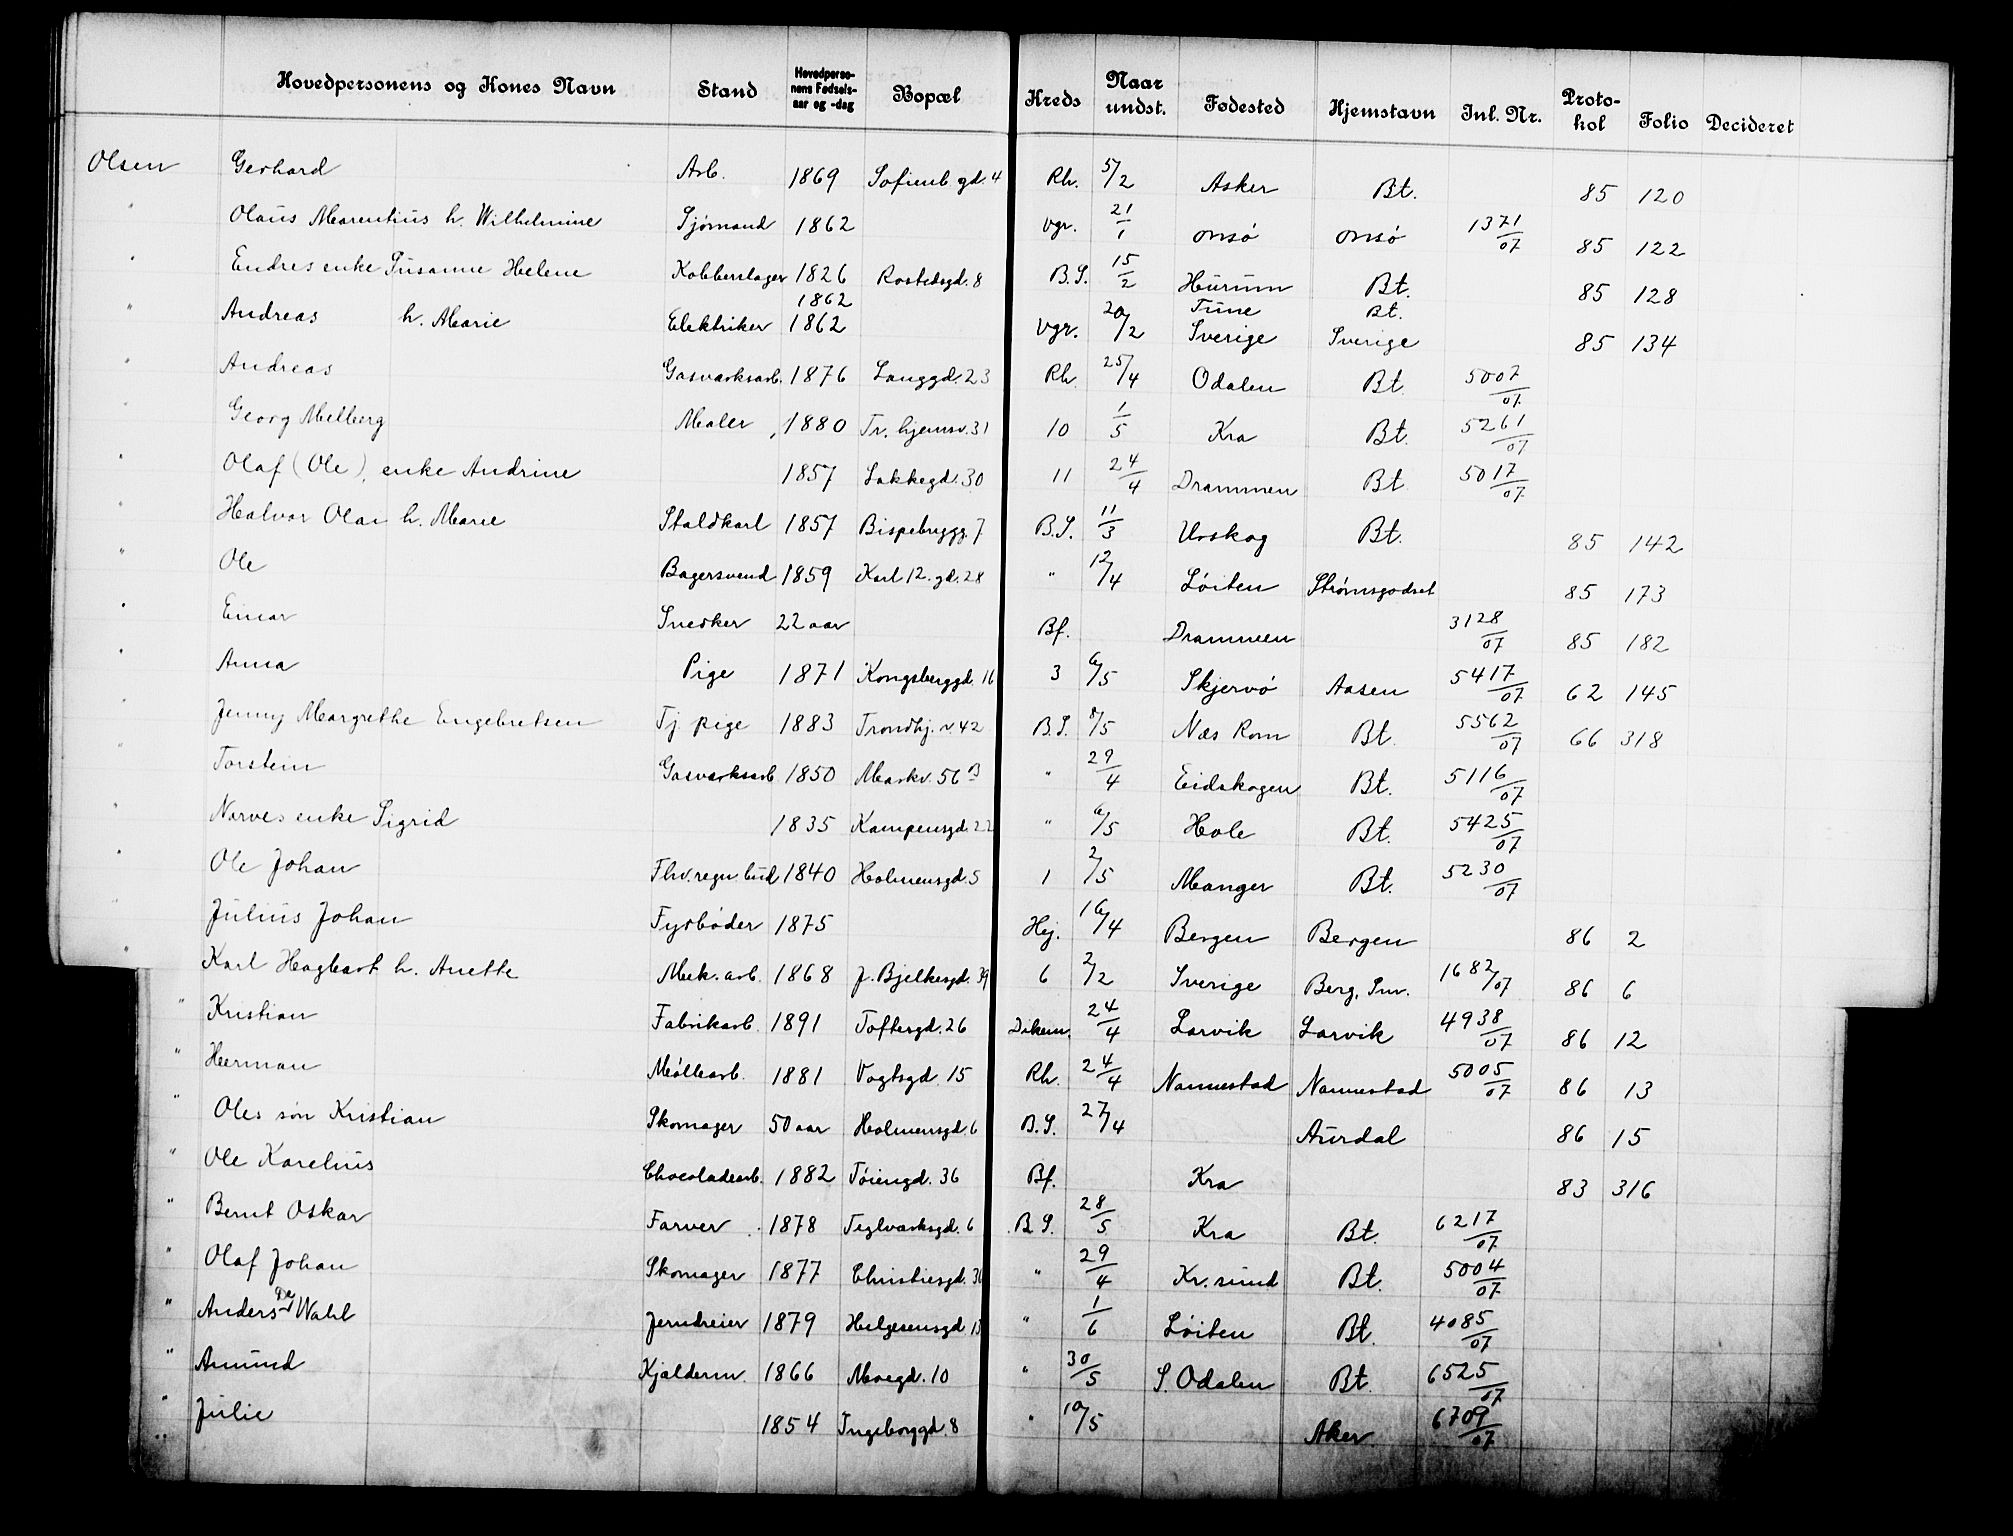 Hovedpersonens og Kones Navn Stand Hovedperso-nens Fødsels-aar og -dag Bopæl Kreds Naar undst. Fødested Hjemstavn Inl. Nr. Proto-kol Folio Decideret
Olsen Gerhard Arb. 1869 Sofienb.gd. 4 Rh. 5/2 Asker Bt. 85 120
" Olaus Marentius h. Wilhelmine Sjømand 1862 Vgr. 21/1 Onsø Onsø 1371/07 85 122
" Endres enke Susanne Helene Kobberslager 1826 Rostedsgd. 8 B.S. 15/2 Hurum Bt. 85 128
" Andreas h. Marie Elektriker 1862 1862 Vgr. 20/2 Tune Sverige Bt. Sverige 85 134
" Andreas Gasværksarb. 1876 Langgd. 23 Rh. 25/4 Odalen Bt. 5007/07
Georg Melberg Maler 1880 Tr. hjemsv. 31 10 1/5 Kra Bt. 5261/07
" Olaf (Ole), enke Andrine 1857 Lakkegd. 30 11 24/4 Drammen Bt. 5017/07
" Halvor Olai h. Marie Staldkarl 1857 Bispebrygg. 7 B.S. 11/3 Urskog Bt. 85 142
" Ole Bagersvend 1859 Karl 12. gd. 28 " 12/4 Løiten Strømsgodset 85 173
" Einar Snedker 22 aar Bf. Drammen 3128/07 85 182
" Anna Pige 1871 Kongsberggd. 16 3 6/5 Skjervø Aasen 5417/07 62 145
" Jenny Margrethe Engebretsen Tj. pige 1883 Trondhj. v. 42 B.S. 8/5 Næs Rom Bt. 5562/07 66 318
" Torstein Gasværksarb. 1850 Markv. 56 B " 29/4 Eidskogen Bt. 5116/07
" Narves enke Sigrid 1835 Kampensgd. 22 " 6/5 Hole Bt. 5425/07
" Ole Johan Fhv. regn. bud 1840 Holmensgd. 5 1 2/5 Manger Bt. 5230/07
" Julius Johan Fyrbøder 1875 Hej. 16/4 Bergen Bergen 86 2
" Karl Hagbart h. Anette Mek. arb. 1868 J. Bjelkesgd. 39 6 2/2 Sverige Berg, Smr. 1682/07 86 6
" Kristian Fabrikarb. 1891 Toftesgd. 26 Dikem. 24/4 Larvik Larvik 4938/07 86 12
" Herman Møllearb. 1881 Vogtsgd. 15 Rh. 24/4 Nannestad Nannestad 5005/07 86 13
" Oles søn Kristian Skomager 50 aar Holmensgd. 6 B.S. 27/4 Aurdal 86 15
" Ole Karelius Chocoladearb. 1882 Tøiengd. 36 Bf. Kra 83 316
" Bernt Oskar Farver 1878 Teglværksgd. 6 B.S. 28/5 Kra Bt. 6217/07
" Olaf Johan Skomager 1877 Christiesgd. " 29/4 Kr. sund Bt. 5004/07
" Anders De Wahl Jerndreier 1879 Helgesensgd. 13 " 1/6 Løiten Bt. 4085/07
" Amund Kjælderm. 1866 Moegd. 10 " 30/5 S. Odalen Bt. 6525/07
" Julie 1854 Ingeborggd. 8 " 10/5 Aker 6709/07